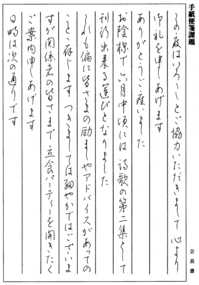 手紙便箋課題
この度はいろいろとご協力いただきまして 心より
御礼を申しあげます
ありがとうございました
お陰様で 六月中頃には 詩歌の第二集として
刊行出来る運びとなりました
これも偏に皆さまの励ましやアドバイスがあっての
ことと存じます つきましては細やかではございま
すが関係者の皆さまで 立食パーティーを開きたく
ご案内申しあげます
日時は次の通りです